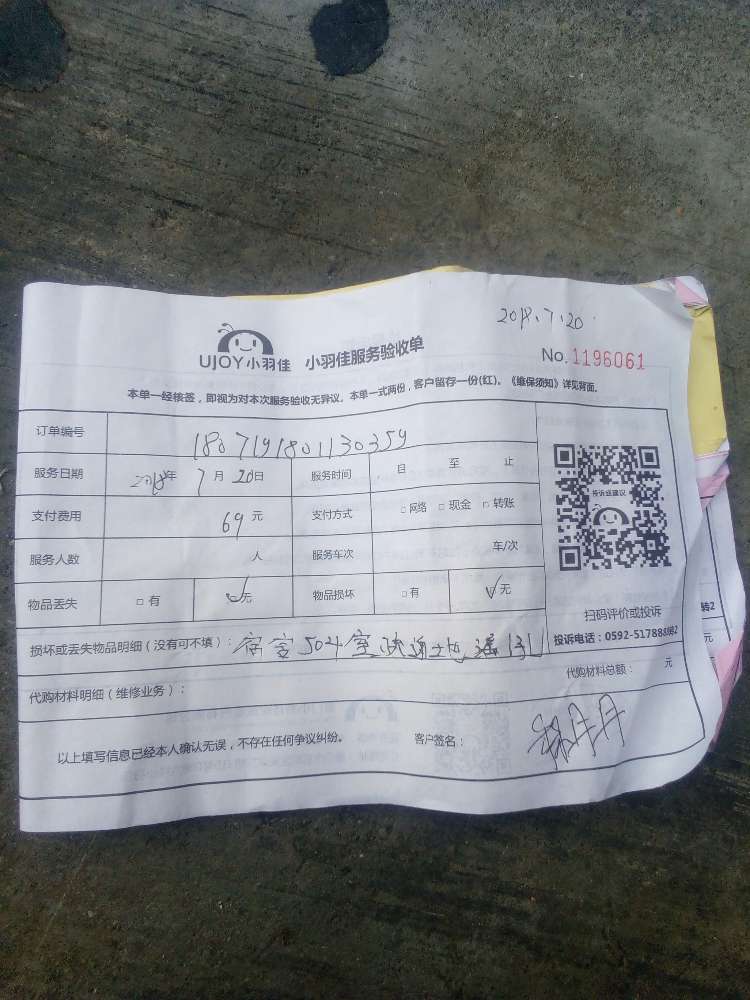 2018.7.20
UJOY小羽佳 小羽佳服务验收单
No.1196061
本单一经核签，即视为对本次服务验收无异议。本单一式两份，客户留存一份(红)。《维保须知》详见背面。
订单编号 1807191801130359
服务日期 2018年 7月 20日 服务时间 自 至 止
投诉或建议
支付费用 69元 支付方式 □网络 □现金 □转账
服务人数 人 服务车次 车/次
物品丢失 □有 ✓无 物品损坏 □有 ✓无
扫码评价或投诉
损坏或丢失物品明细（没有可不填）： 宿舍504室疏通
投诉电话：0592-517888
代购材料明细（维修业务）： 代购材料总额： 元
以上填写信息已经本人确认无误，不存在任何争议纠纷。 客户签名：
转2
元